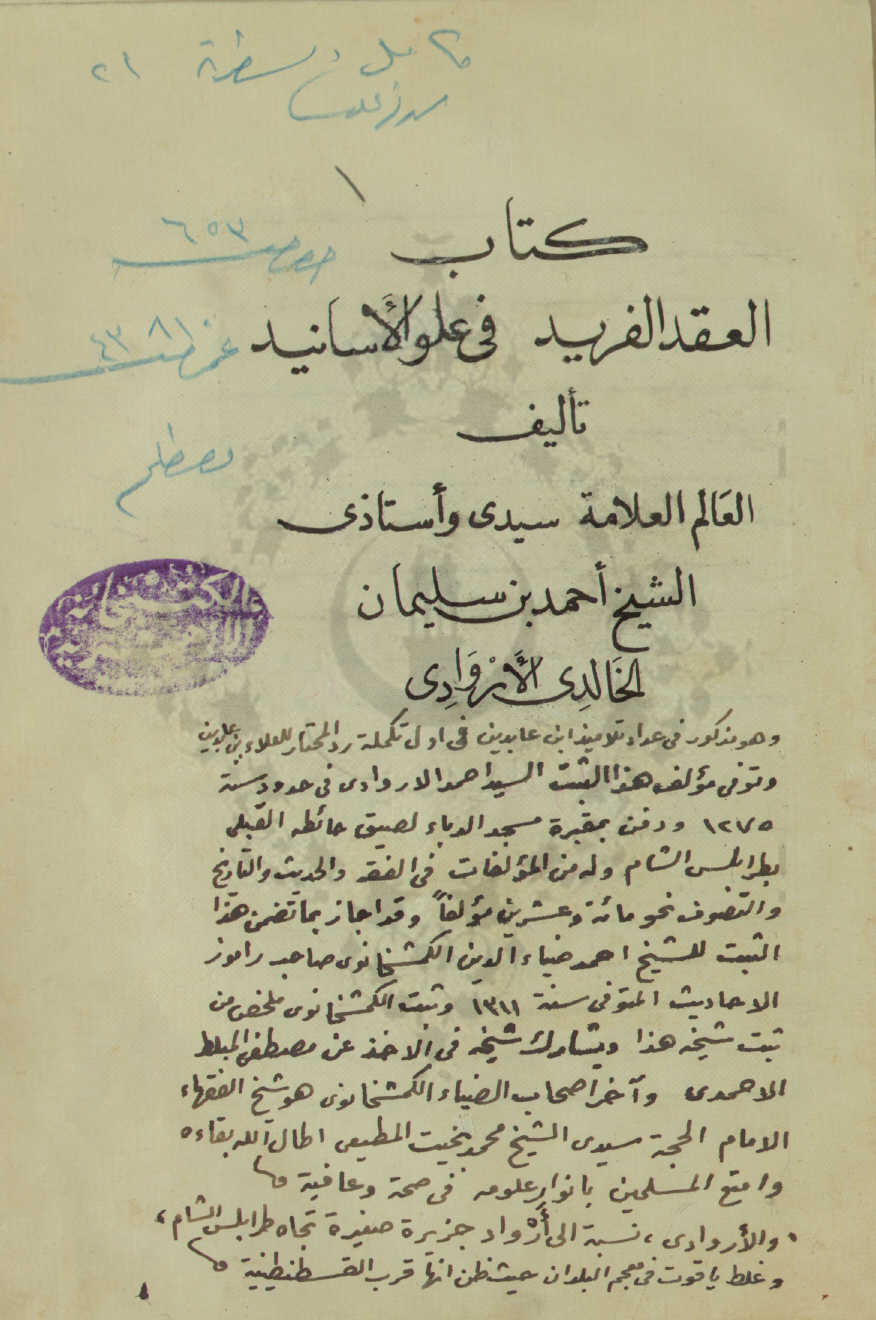 ٢١
١
خصوصية ٦٥٣
كتاب
العقد الفريد في علو الأسانيد
تأليف
العَالم العلامة سيدى وأستاذى
الشيخ أحمد بن سليمان
الخَالدِى الأَرْوَادِى
وهو مذكور فى عداد تلاميذ ابن عابدين فى اول تكملة رد المحتار للعلاء بن عابدين
وتوفى مؤلف هذا الثبت السيد احمد الاروادى فى حدود سنة
١٢٧٥ ودفن بمقبرة مسجد الدباء لصيق حائطه القبلى
بطرابلس الشام وله من المؤلفات فى الفقه والحديث والتاريخ
والتصوف نحو مائة وعشرين مؤلفاً وقد اجاز بما تضمن هذا
الثبت للشيخ احمد ضياء الدين الكمشخانوى صاحب راموز
الاحاديث المتوفى سنة ١٣١١ وثبت الكمشخانوى ملخص من
ثبت شيخه هذا ويشارك شيخه فى الاخذ عن مصطفى المبلط
الاحمدى وآخر اصحاب الضياء الكمشخانوى هو شيخ الفقهاء
الامام الحجة سيدى الشيخ محمد بخيت المطيعى اطال الله بقاءه
وامتع المسلمين بانوار علومه فى صحة وعافية
والأروادى، نسبة الى أَرْواد جزيرة صغيرة تجاه طرابلس الشام،
وغلط ياقوت فى معجم البلدان حيث ظن انها قرب القسطنطينية